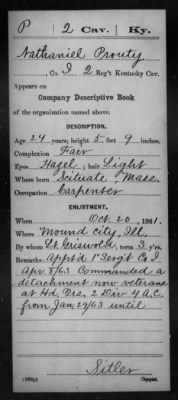 P 2 Cav. Ky.
Nathaniel Prouty
, Co. I, 2 Reg't Kentucky Cav.
Appears on
Company Descriptive Book
of the organization named above.
DESCRIPTION.
Age 24 years; height 5 feet 9 inches.
Complexion Fair
Eyes Hazel; hair Light
Where born Scituate, Mass.
Occupation Carpenter
ENLISTMENT.
When Oct. 20, 1861.
Where Mound city, Ill.
By whom Lt. Griswold; term 3 y'rs.
Remarks: Appt'd 1st Serg't Co I
Apr. 8/63 Commanded a
detachment now veterans
at Hd. Qrs. 2 Div 4 A.C.
from Jan 27/63 until
Sitler
Copyist.